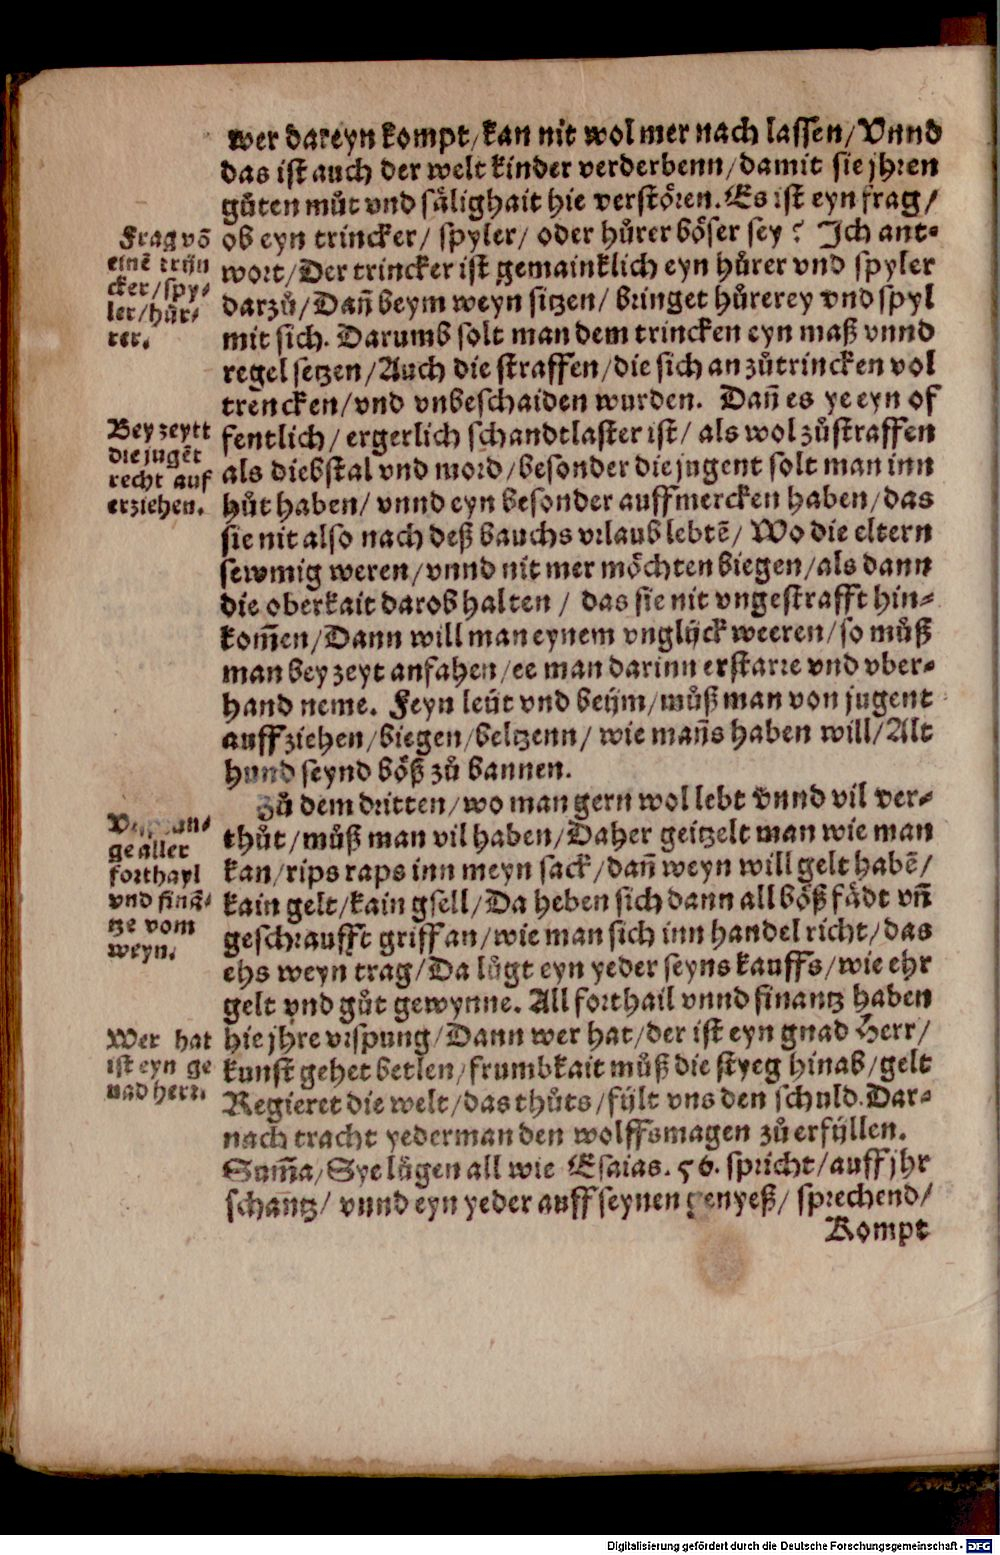 wer dareyn kompt/kan nit wol mer nach lassen/Vnnd
das ist auch der welt kinder verderbenn/damit sie jhren
gůten můt vnd sälighait hie verstören. Es ist eyn frag/
ob eyn trincker/ spyler/ oder hůrer böser sey? Ich ant-
wort/Der trincker ist gemainklich eyn hůrer vnd spyler
darzů/Dañ beym weyn sitzen/ bringet hůrerey vnd spyl
mit sich. Darumb solt man dem trincken eyn maß vnnd
regel setzen/Auch die straffen/die sich an zůtrincken vol
trencken/vnd vnbeschaiden wurden. Dañ es ye eyn of
fentlich/ ergerlich schandtlaster ist/ als wol zůstraffen
als diebstal vnd mord/besonder die jugent solt man inn
hůt haben/ vnnd eyn besonder auffmercken haben/das
sie nit also nach deß bauchs vrlaub lebtē/ Wo die eltern
sewmig weren/vnnd nit mer möchten biegen/als dann
die oberkait darob halten / das sie nit vngestrafft hin-
kom̃en/Dann will man eynem vnglÿck weeren/so můß
man bey zeyt anfahen/ee man darinn erstarre vnd vber-
hand neme. Feyn leüt vnd beÿm/můß man von jugent
auffziehen/biegen/beltzenn/ wie mañs haben will/Alt
hund seynd böß zů bannen.
Zů dem dritten/wo man gern wol lebt vnnd vil ver-
thůt/můß man vil haben/Daher geitzelt man wie man
kan/rips raps inn meyn sack/dañ weyn will gelt habē/
kain gelt/kain gsell/Da heben sich dann all böß fädt vñ
geschraufft griff an/wie man sich inn handel richt/das
ehs weyn trag/Da lůgt eyn yeder seyns kauffs/wie ehr
gelt vnd gůt gewynne. All forthail vnnd finantz haben
hie jhre vrspung/Dann wer hat/der ist eyn gnad Herr/
kunst gehet betlen/frumbkait můß die styeg hinab/gelt
Regieret die welt/das thůts/fÿlt vns den schuld. Dar-
nach tracht yederman den wolffsmagen zů erfÿllen.
Sum̃a/Sye lůgen all wie Esaias. 56. spricht/auff jhr
schantz/ vnnd eyn yeder auff seynen genyeß/ sprechend/
Kompt
Frag võ
einē trÿn
cker/spy-
ler/hůr-
rer.
Bey zeytt
die jugēt
recht auf
erziehen.
ge aller
forthayl
vnd finā-
tze vom
weyn.
Wer hat
ist eyn ge
nad herr.
Digitalisierung gefördert durch die Deutsche Forschungsgemeinschaft - DFG